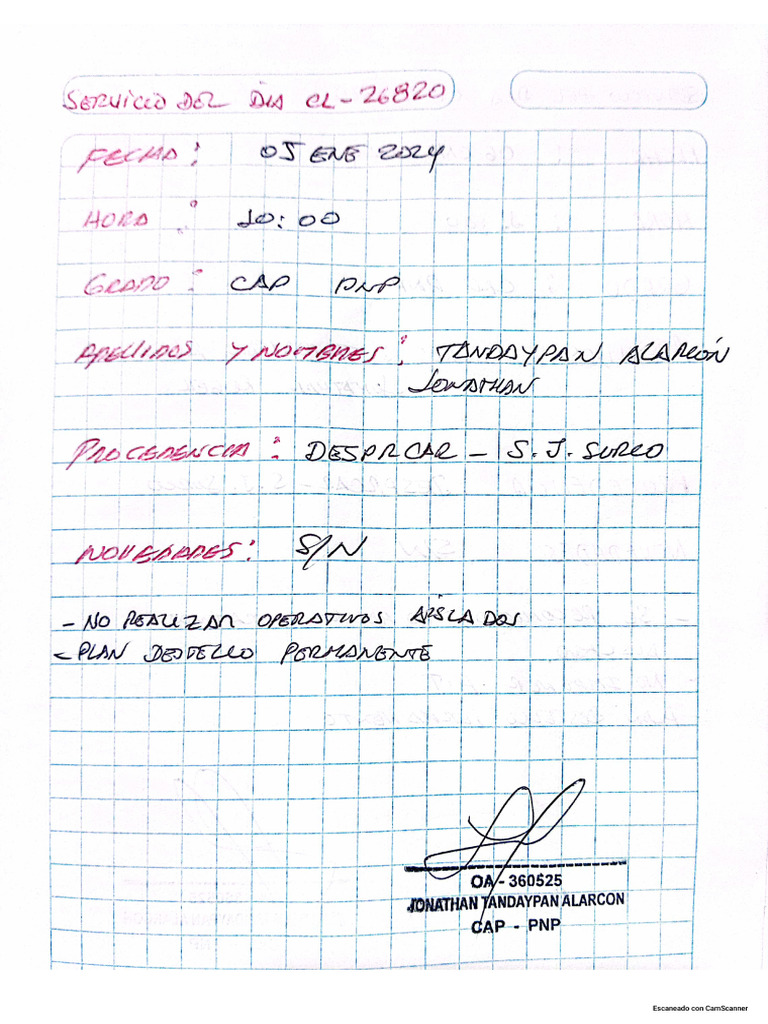 SERVICIO DEL DIA CL-26820
FECHA: 05 ENE 2024
HORA : 10:00
GRADO : CAP PNP
APELLIDOS Y NOMBRES : TANDAYPAN ALARCÓN
JONATHAN
PROCEDENCIA : DESPRCAR - S.J. SURCO
NOVEDADES: S/N
- NO REALIZAR OPERATIVOS AISLADOS
- PLAN DESTELLO PERMANENTE
OA - 360525
JONATHAN TANDAYPAN ALARCON
CAP - PNP
Escaneado con CamScanner